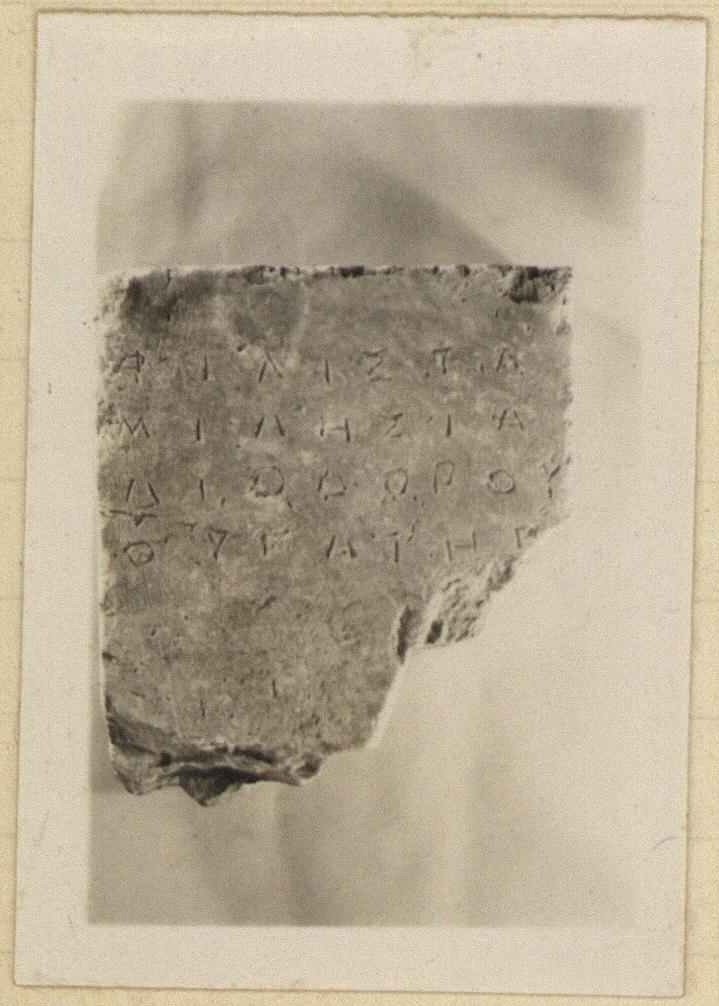 ΦΙΛΙΣΤΑ
ΜΙΛΗΣΙΑ
ΔΙΟΔΩΡΟΥ
ΘΥΓΑΤΗΡ